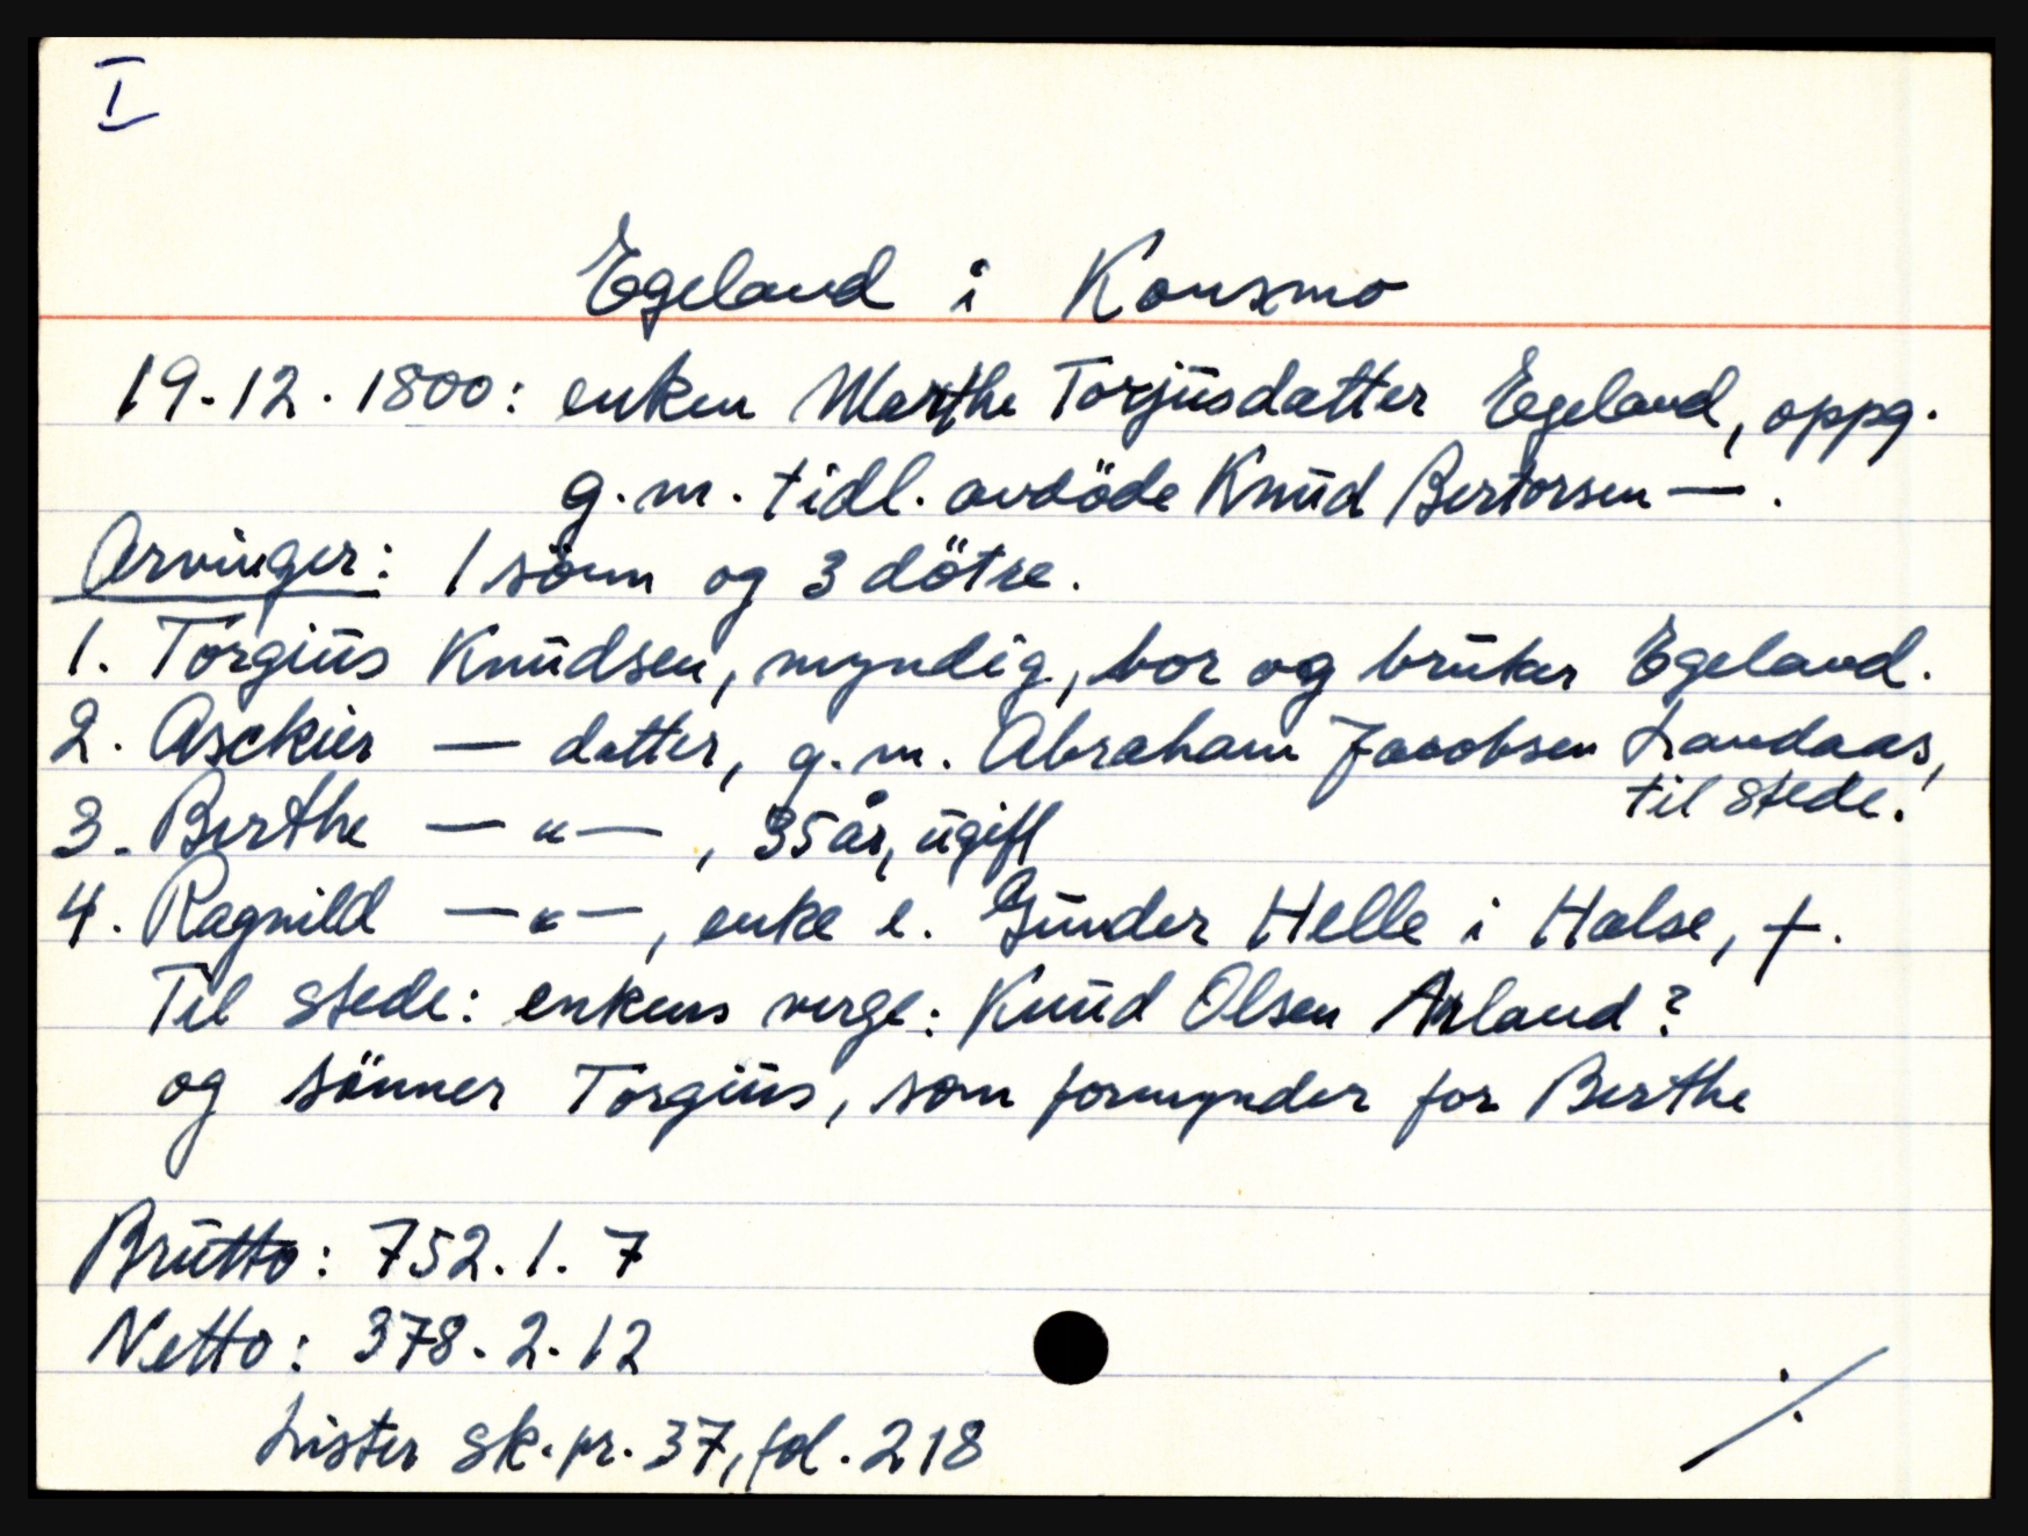 I
Egeland i Konsmo
19-12-1800: enken Marthe Torjusdatter Egeland, oppg.
g.m. tidl. avdöde Knud Bertorsen — .
Arvinger: 1 sönn og 3 dötre.
1. Torgius Knudsen, myndig, bor og bruker Egeland.
2. Asckier — datter, g.m. Abraham Jacobsen Landaas,
til stede.
3. Berthe — " — , 35 år, ugift
4. Ragnild — " — , enke e. Gunder Helle i Halse, †.
Til stede: enkens verge: Knud Olsen Arland?
og sönner Torgius, som formynder for Berthe
Brutto: 752.1.7
Netto: 378.2.12
Lister sk.pr. 37, fol. 218
./.